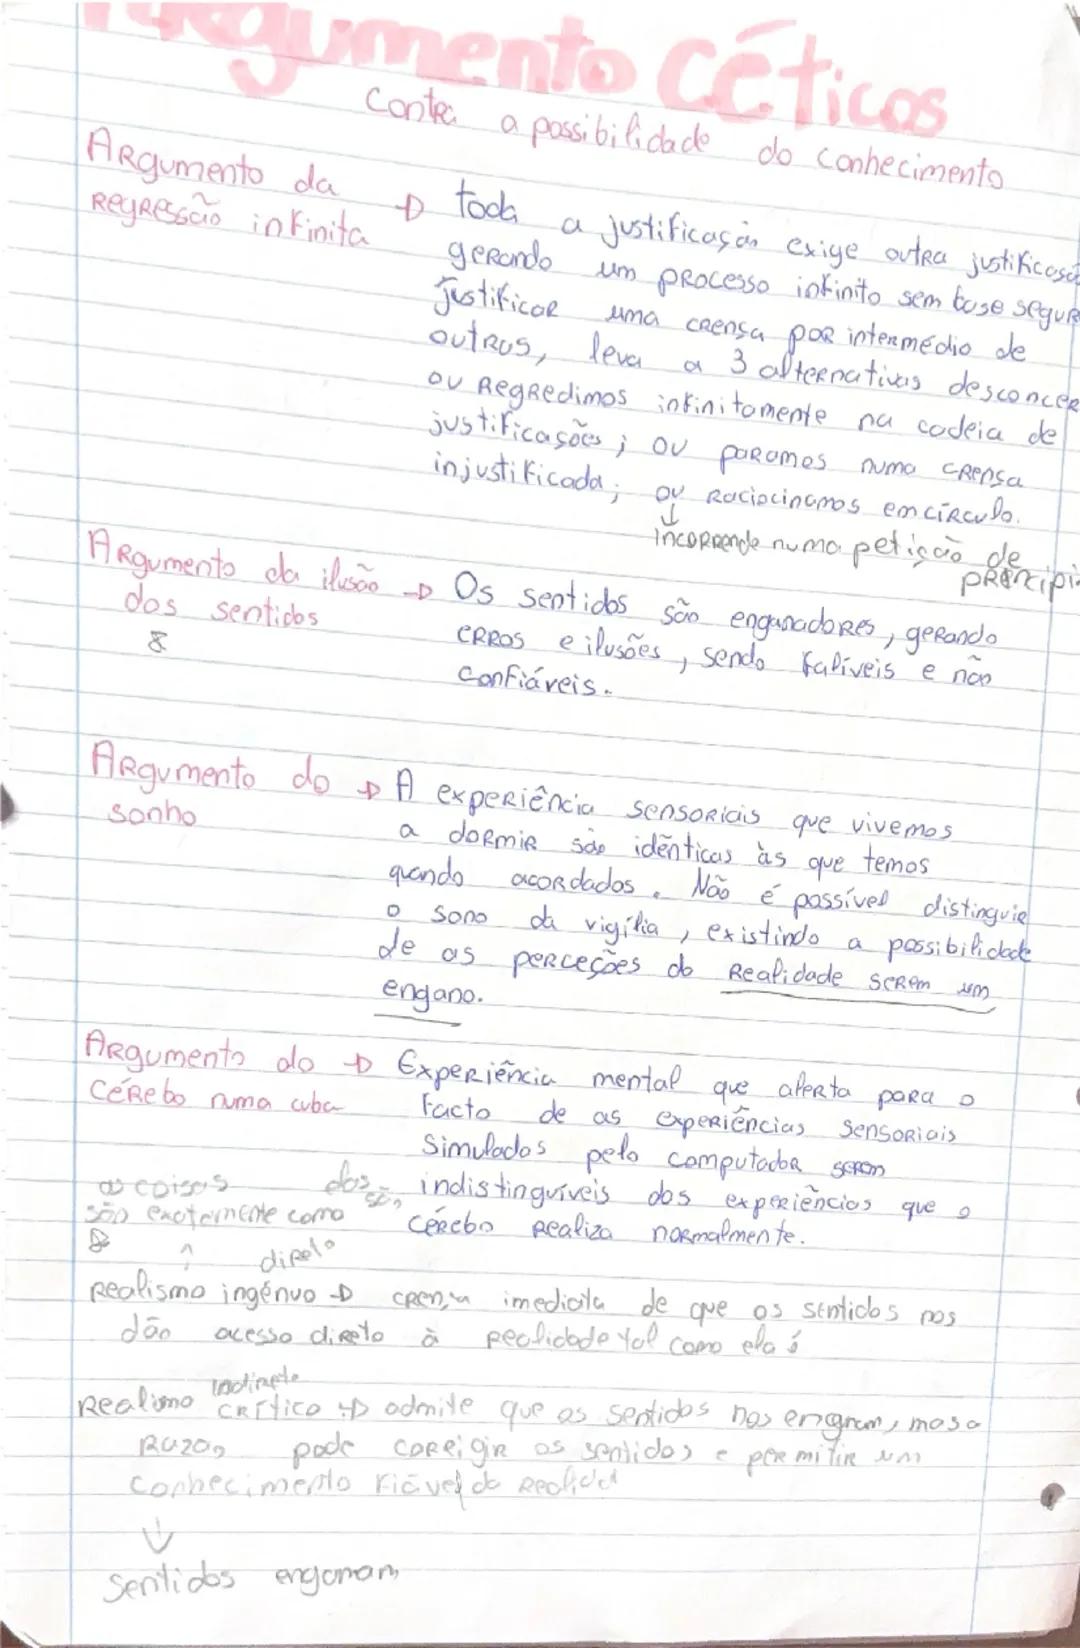 Argumento Céticos
Contra a possibilidade do conhecimento
Argumento da regressão infinita → toda a justificação exige outra justificaçã
gerando um processo infinito sem base segur
Justificar uma crença por intermédio de
outras, leva a 3 alternativas desconcer
ou regredimos infinitamente na cadeia de
justificações; ou paramos numa crença
injustificada; ou raciocinamos em círculo.
↓
incorrendo numa petição de
princípi
Argumento da ilusão dos sentidos → Os sentidos são enganadores, gerando
erros e ilusões, sendo falíveis e não
confiáveis.
Argumento do sonho → A experiência sensoriais que vivemos
a dormir são idênticas às que temos
quando acordados. Não é possível distinguir
o sono da vigília, existindo a possibilidade
de as perceções do Realidade serem um
engano.
Argumento do Cérebo numa cuba → Experiência mental que alerta para o
facto de as experiências sensoriais
simulados pelo computador serem
indistinguíveis das experiências que o
cérebo realiza normalmente.
as coisas são exatamente como
direto
Realismo ingénuo → crença imediata de que os sentidos nos
dão acesso direto à realidade tal como ela é
indireto
Realismo crítico → admite que os sentidos nos enganam, mas a
Razão pode corrigir os sentidos e permitir um
conhecimento fiável da realidad
↓
Sentidos enganam